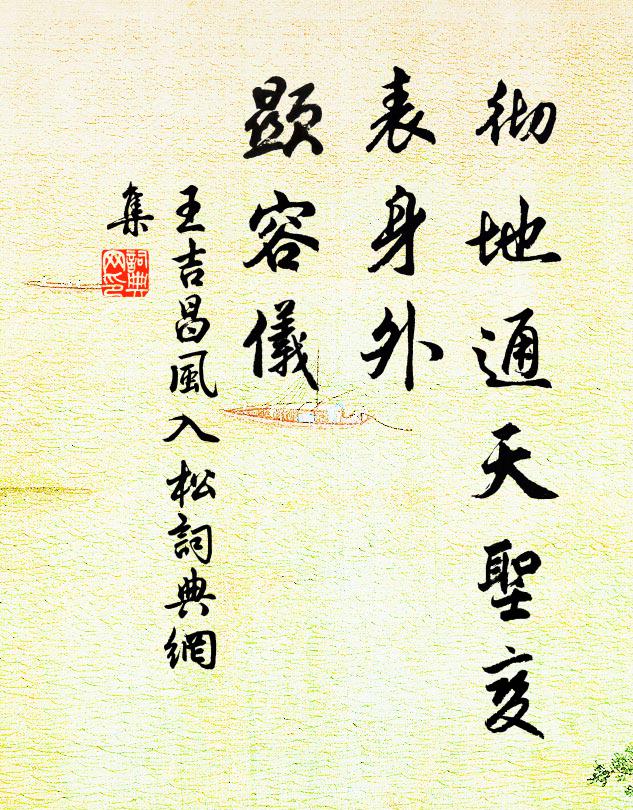 彻地通天聖变
表身外
顯容儀
王吉昌風入松詞典網
集
詞典
网印